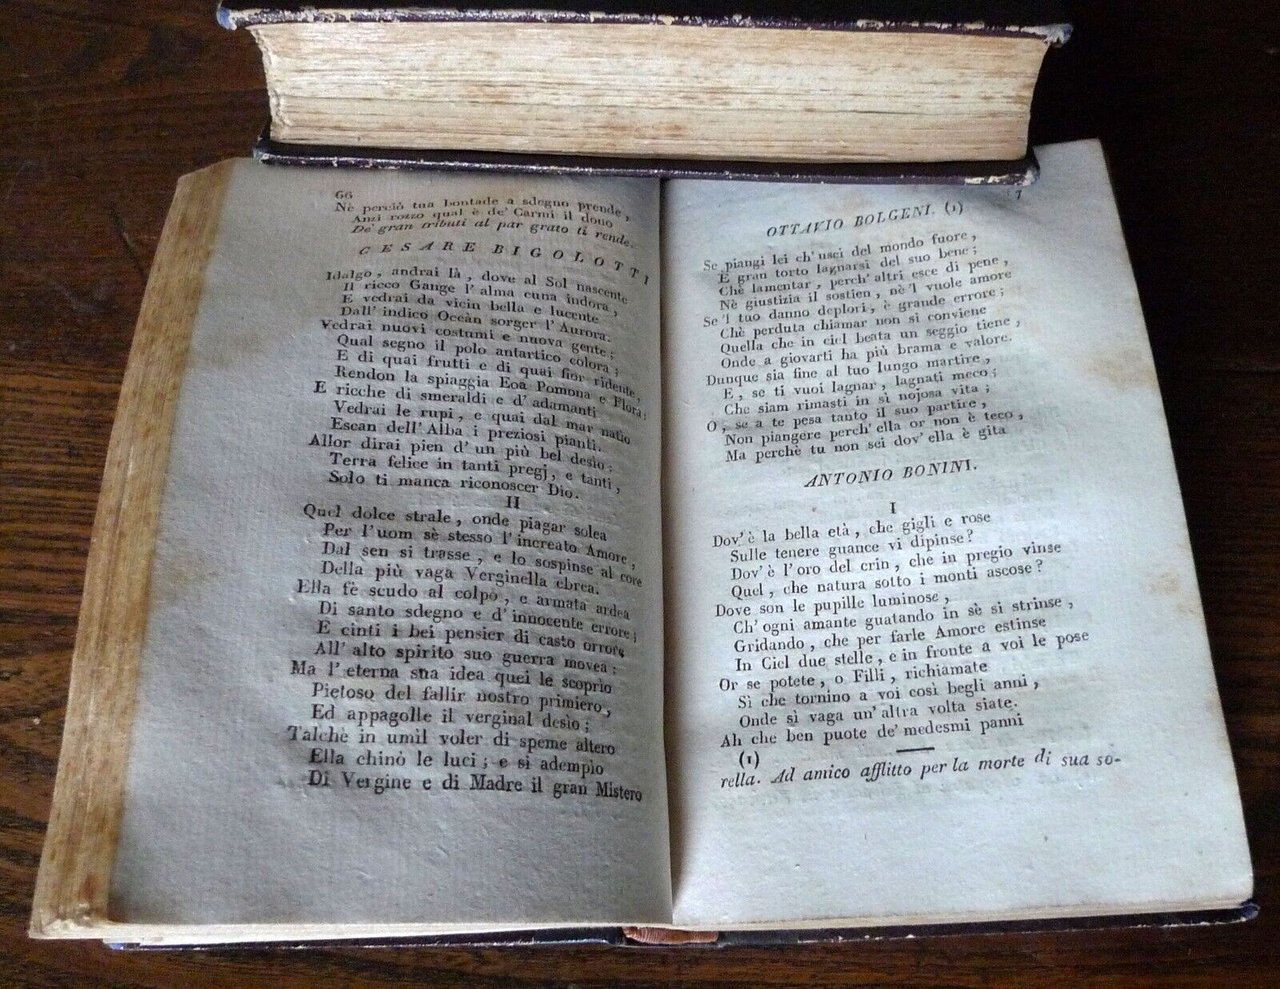 66
Nè perciò tua bontade a sdegno prende,
Anzi rozzo qual è de' Carmi il dono
De' gran tributi al par grato ti rende.
CESARE BIGOLOTTI
I
Idalgo, andrai là, dove al Sol nascente
Il ricco Gange l'alma cuna indora,
E vedrai da vicin bella e lucente
Dall'indico Oceàn sorger l'Aurora.
Vedrai nuovi costumi e nuova gente;
Qual segno il polo antartico colora;
E di quai frutti e di quai fior ridente,
Rendon la spiaggia Eoa Pomona e Flora:
E ricche di smeraldi e d'adamanti
Vedrai le rupi, e quai dal mar natio
Escan dell'Alba i preziosi pianti.
Allor dirai pien d'un più bel desìo:
Terra felice in tanti pregj, e tanti,
Solo ti manca riconoscer Dio.
II
Quel dolce strale, onde piagar solea
Per l'uom sè stesso l'increato Amore,
Dal sen si trasse, e lo sospinse al core
Della più vaga Verginella ebrea.
Ella fè scudo al colpo, e armata ardea
Di santo sdegno e d'innocente errore;
E cinti i bei pensier di casto orrore
All'alto spirito suo guerra movea:
Ma l'eterna sua idea quei le scoprìo
Pietoso del fallir nostro primiero,
Ed appagolle il verginal desìo;
Talchè in umil voler di speme altero
Ella chinò le luci; e si adempìo
Di Vergine e di Madre il gran Mistero
7
OTTAVIO BOLGENI. (1)
Se piangi lei ch'uscì del mondo fuore,
E gran torto lagnarsi del suo bene;
Chè lamentar, perch'altri esce di pene,
Nè giustizia il sostien, nè'l vuole amore
Se'l tuo danno deplori, è grande errore;
Chè perduta chiamar non si conviene
Quella che in ciel beata un seggio tiene,
Onde a giovarti ha più brama e valore.
Dunque sia fine al tuo lungo martire,
E, se ti vuoi lagnar, lagnati meco;
Che siam rimasti in sì nojosa vita;
O, se a te pesa tanto il suo partire,
Non piangere perch'ella or non è teco,
Ma perchè tu non sei dov'ella è gita
ANTONIO BONINI.
I
Dov'è la bella età, che gigli e rose
Sulle tenere guance vi dipinse?
Dov'è l'oro del crin, che in pregio vinse
Quel, che natura sotto i monti ascose?
Dove son le pupille luminose,
Ch'ogni amante guatando in sè si strinse,
Gridando, che per farle Amore estinse
In Ciel due stelle, e in fronte a voi le pose
Or se potete, o Filli, richiamate
Sì che tornino a voi così begli anni,
Onde sì vaga un'altra volta siate.
Ah che ben puote de' medesmi panni
(1)
rella. Ad amico afflitto per la morte di sua so-